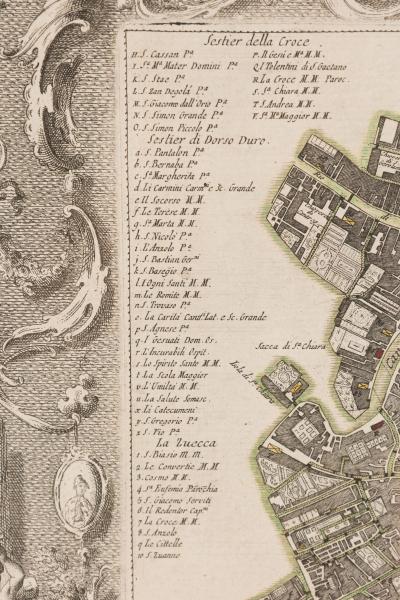 Sestier della Croce
H. S. Cassan Pª
I. Sª Mª Mater Domini Pª
K. S. Stae Pª
L. S. Zan Degolà Pª
M. S. Giacomo dall'Orio Pª
N. S. Simon Grande Pª
O. S. Simon Piccolo Pª
P. Il Gesù e Mª M.M.
Q. I Tolentini di S. Gaetano
R. La Croce M.M. Paroc.
S. Sª Chiara M.M.
T. S. Andrea M.M.
V. Sª Mª Maggior M.M.
Sestier di Dorso Duro.
a. S. Pantalon Pª
b. S. Bernaba Pª
c. Sª Margherita Pª
d. Li Carmini Carmni e Sc. Grande
e. Il Socorso M.M.
f. Le Terese M.M.
g. Sª Marta M.M.
h. S. Nicolò Pª
i. L'Anzolo Pª
j. S. Bastian Germi
k. S. Basegio Pª
l. I Ogni Santi M.M.
m. Le Romite M.M.
n. S. Trovaso Pª
o. La Carità Canª Lat. e Sc. Grande
p. S. Agnese Pª
q. I Gesuati Dom. Os.
r. L'Incurabili Ospit.
s. Lo Spirito Santo M.M.
t. La Scola Maggior
v. L'Umiltà M.M.
u. La Salute Somasc.
x. Li Catecumeni
y. S. Gregorio Pª
z. S. Vio Pª
La Zuecca
1. S. Biasio M.M.
2. Le Convertie M.M.
3. Cosmo M.M.
4. Sª Eufemia Parochia
5. S. Giacomo Serviti
6. Il Redentor Capni
7. La Croce M.M.
8. S. Anzolo
9. Le Cittelle
10. S. Zuanne
Sacca di Sª Chiara